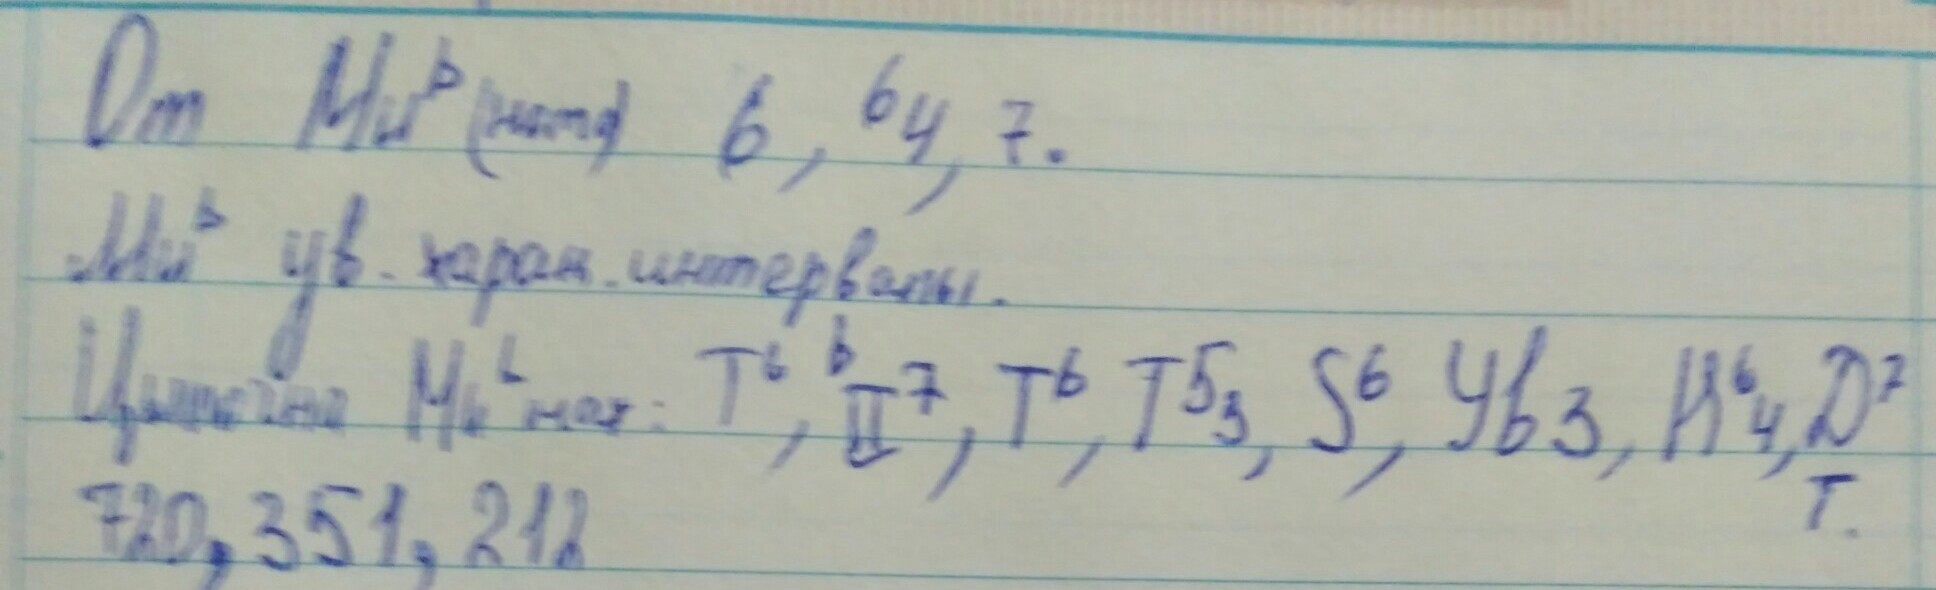 От Ми♭ (нота) 6, 6 4, 7.
Ми♭ ув. харак. интервалы.
Цепочка Ми♭ : T6, ♭II7, T6, T5 3, S6, Ув3, K6 4, D7
T.
720, 351, 212